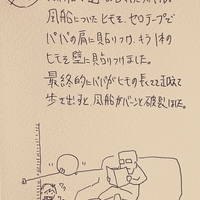 風船についたヒモを、セロテープで
パパの肩に貼りつけ、もう1本の
ヒモを壁に貼りつけました。
最終的にパパがヒモの長さを超えて
歩き出すと、風船がパーンと破裂した。